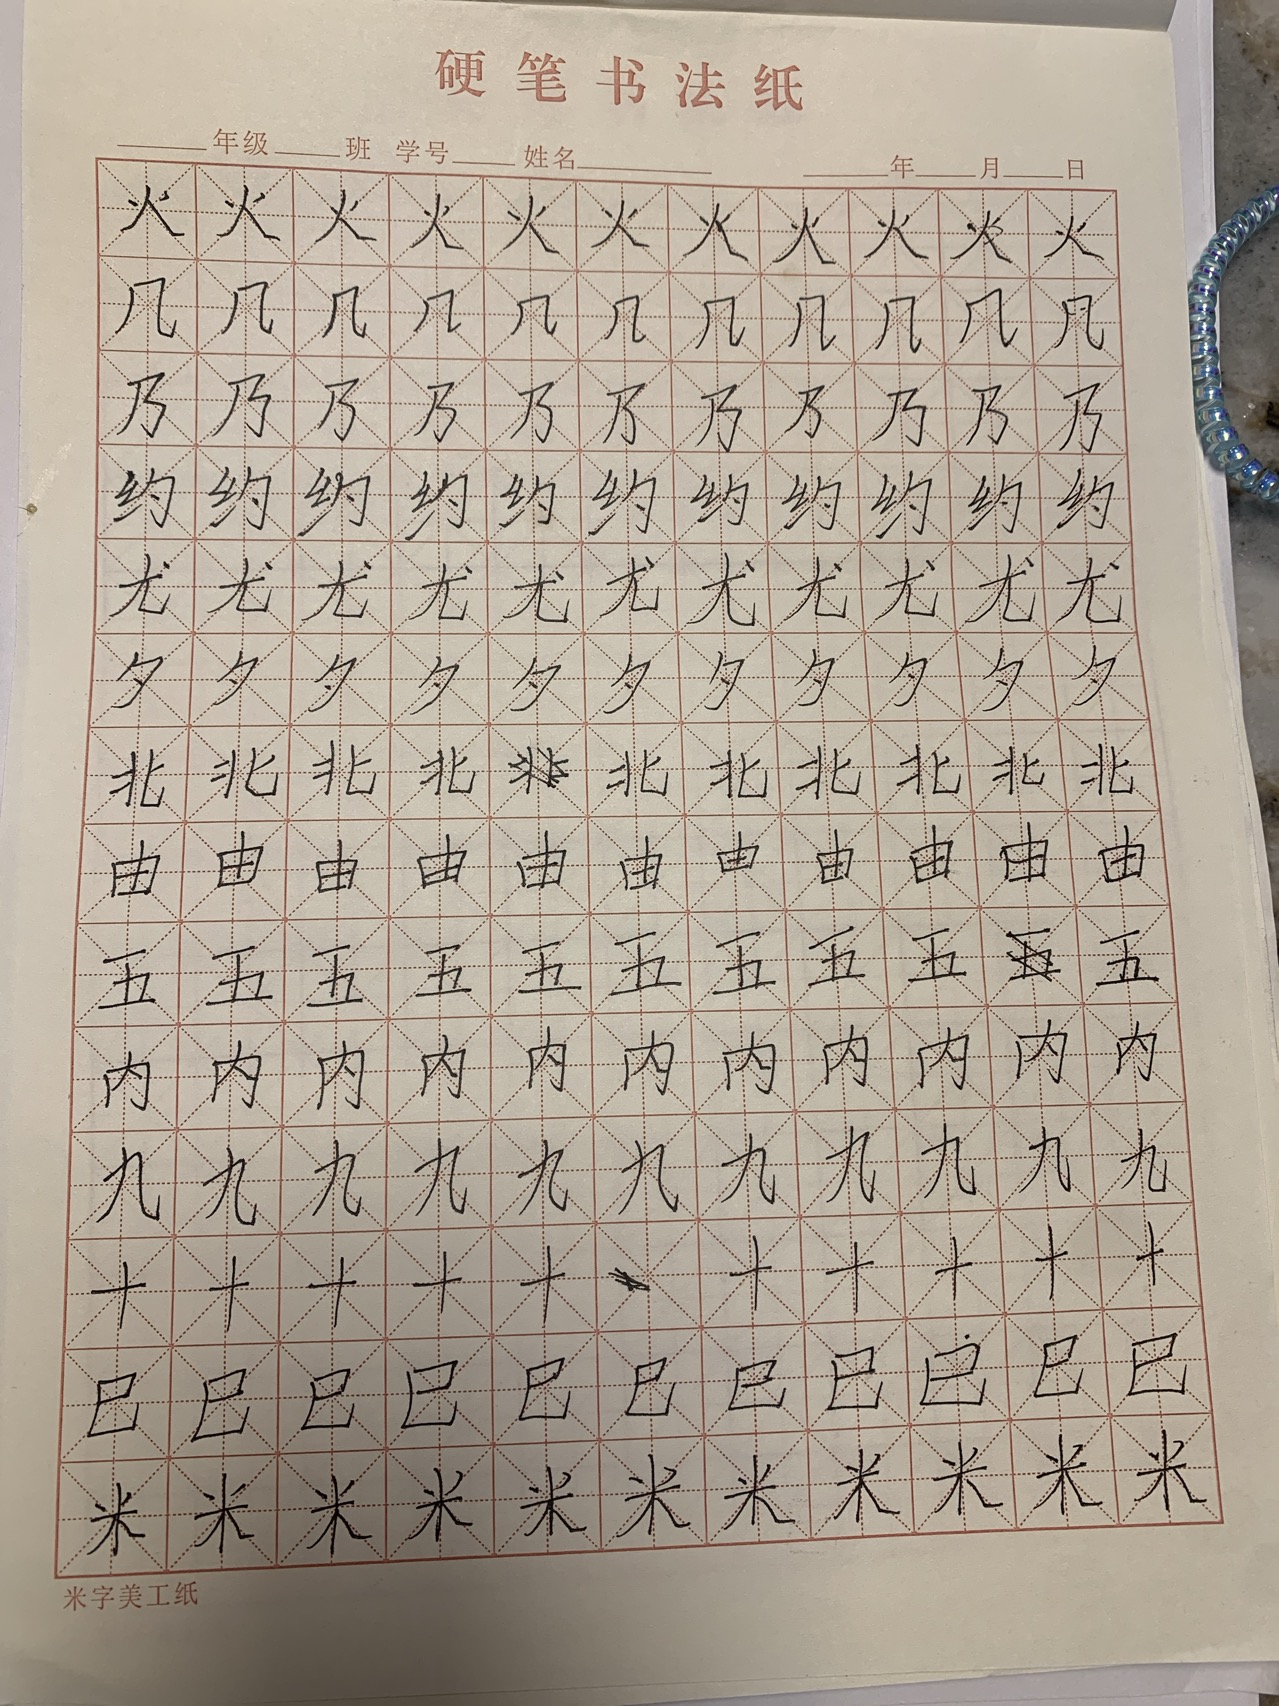 硬笔书法纸
年级 班 学号 姓名 年 月 日
火火火火火火火火火火火
几几几几几几几几几几几
乃乃乃乃乃乃乃乃乃乃乃
约约约约约约约约约约约
尤尤尤尤尤尤尤尤尤尤尤
夕夕夕夕夕夕夕夕夕夕夕
北北北北北北北北北北
由由由由由由由由由由由
五五五五五五五五五五
内内内内内内内内内内内
九九九九九九九九九九九
十十十十十十十十十十
巳巳巳巳巳巳巳巳巳巳巳
米米米米米米米米米米米
米字美工纸